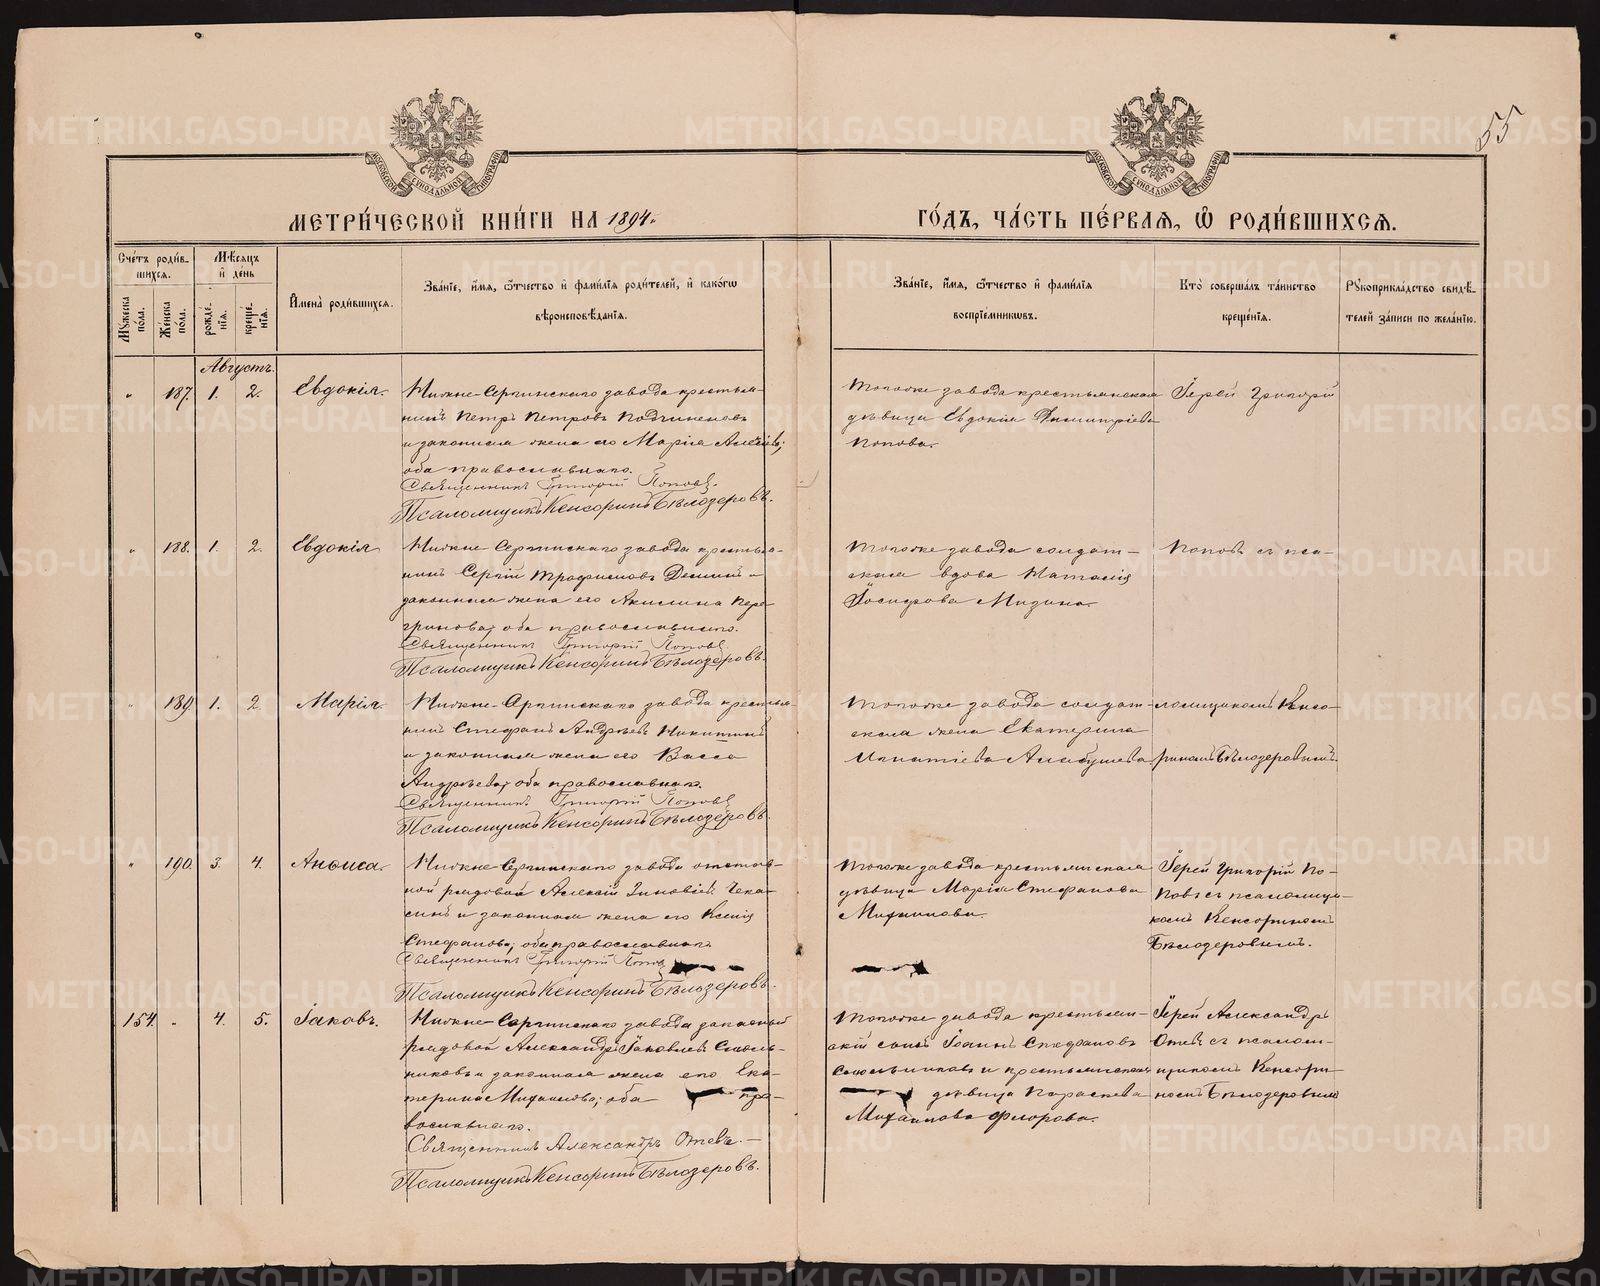 55
МОСКОВСКОЙ СѴНОДАЛЬНОЙ ТИПОГРАФІИ
МОСКОВСКОЙ СѴНОДАЛЬНОЙ ТИПОГРАФІИ
МЕТРИ́ЧЕСКОЙ КНИ́ГИ НА 1894.
ГО́ДЪ, ЧА́СТЬ ПЕ́РВАѦ, Ѡ РОДИ́ВШИХСѦ.
Сче́тъ роди́в-
шихсѧ.
Мѣ́сѧцъ
и де́нь
Мꙋ́жеска
по́ла.
Же́нска
по́ла.
рожде́-
нїѧ.
креще́-
нїѧ.
Имена̀ роди́вшихсѧ.
Зва́нїе, и́мѧ, ѻ́тчество и фами́лїѧ роди́телей, и како́гѡ
вѣроисповѣ́данїѧ.
Зва́нїе, и́мѧ, ѻ́тчество и фами́лїѧ
воспрїе́мникѡвъ.
Кто̀ соверша́лъ та́инство
креще́нїѧ.
Рꙋкоприкла́дство свидѣ́-
телей за́писи по жела́нїю.
Августъ.
" 187. 1. 2. Евдокія.
Нижне-Сергинскаго завода крестья-
нинъ Петръ Петровъ Подчиненовъ
и законная жена его Марія Алексѣева;
оба православнаго.
Священникъ Григорій Поповъ.
Псаломщикъ Кенсоринъ Бѣлозеровъ.
Тогоже завода крестьянская
дѣвица Евдокія Димитріева
Попова.
Іерей Григорій
" 188. 1. 2. Евдокія
Нижне-Сергинскаго завода крестья-
нинъ Сергій Трофимовъ Деминъ и
законная жена его Акилина Пере-
гринова; оба православнаго.
Священникъ Григорій Поповъ
Псаломщикъ Кенсоринъ Бѣлозеровъ.
Тогоже завода солдат-
ская вдова Наталія
Іосифова Мизина.
Поповъ съ пса-
" 189. 1. 2. Марія.
Нижне-Сергинскаго завода крестья-
нинъ Стефанъ Андреевъ Никитинъ
и законная жена его Васса
Андреева; оба православнаго.
Священникъ Григорій Поповъ
Псаломщикъ Кенсоринъ Бѣлозеровъ.
Тогоже завода солдат-
ская жена Екатерина
Игнатіева Алабушева
ломщикомъ Кенсо-
риномъ Бѣлозеровымъ.
" 190. 3. 4. Анѳиса.
Нижне-Сергинскаго завода отстав-
ной рядовой Алексій Зиновіевъ Чека-
синъ и законная жена его Ксенія
Стефанова; оба православнаго.
Священникъ Григорій Поповъ
Псаломщикъ Кенсоринъ Бѣлозеровъ.
Тогоже завода крестьянская
дѣвица Марія Стефанова
Мифтахова.
Іерей Григорій По-
повъ съ псаломщи-
комъ Кенсориномъ
Бѣлозеровымъ.
154. " 4. 5. Іаковъ.
Нижне-Сергинскаго завода запасный
рядовой Александръ Іаковлевъ Сколь-
никовъ и законная жена его Ека-
терина Михаилова; оба пра-
вославнаго.
Священникъ Александръ Отевъ.
Псаломщикъ Кенсоринъ Бѣлозеровъ.
Тогоже завода крестьян-
скій сынъ Іоаннъ Стефановъ
и крестьянская
дѣвица Параскева
Михаилова Флорова.
Іерей Александръ
Отевъ съ псалом-
щикомъ Кенсори-
номъ Бѣлозеровымъ
METRIKI.GASO-URAL.RU